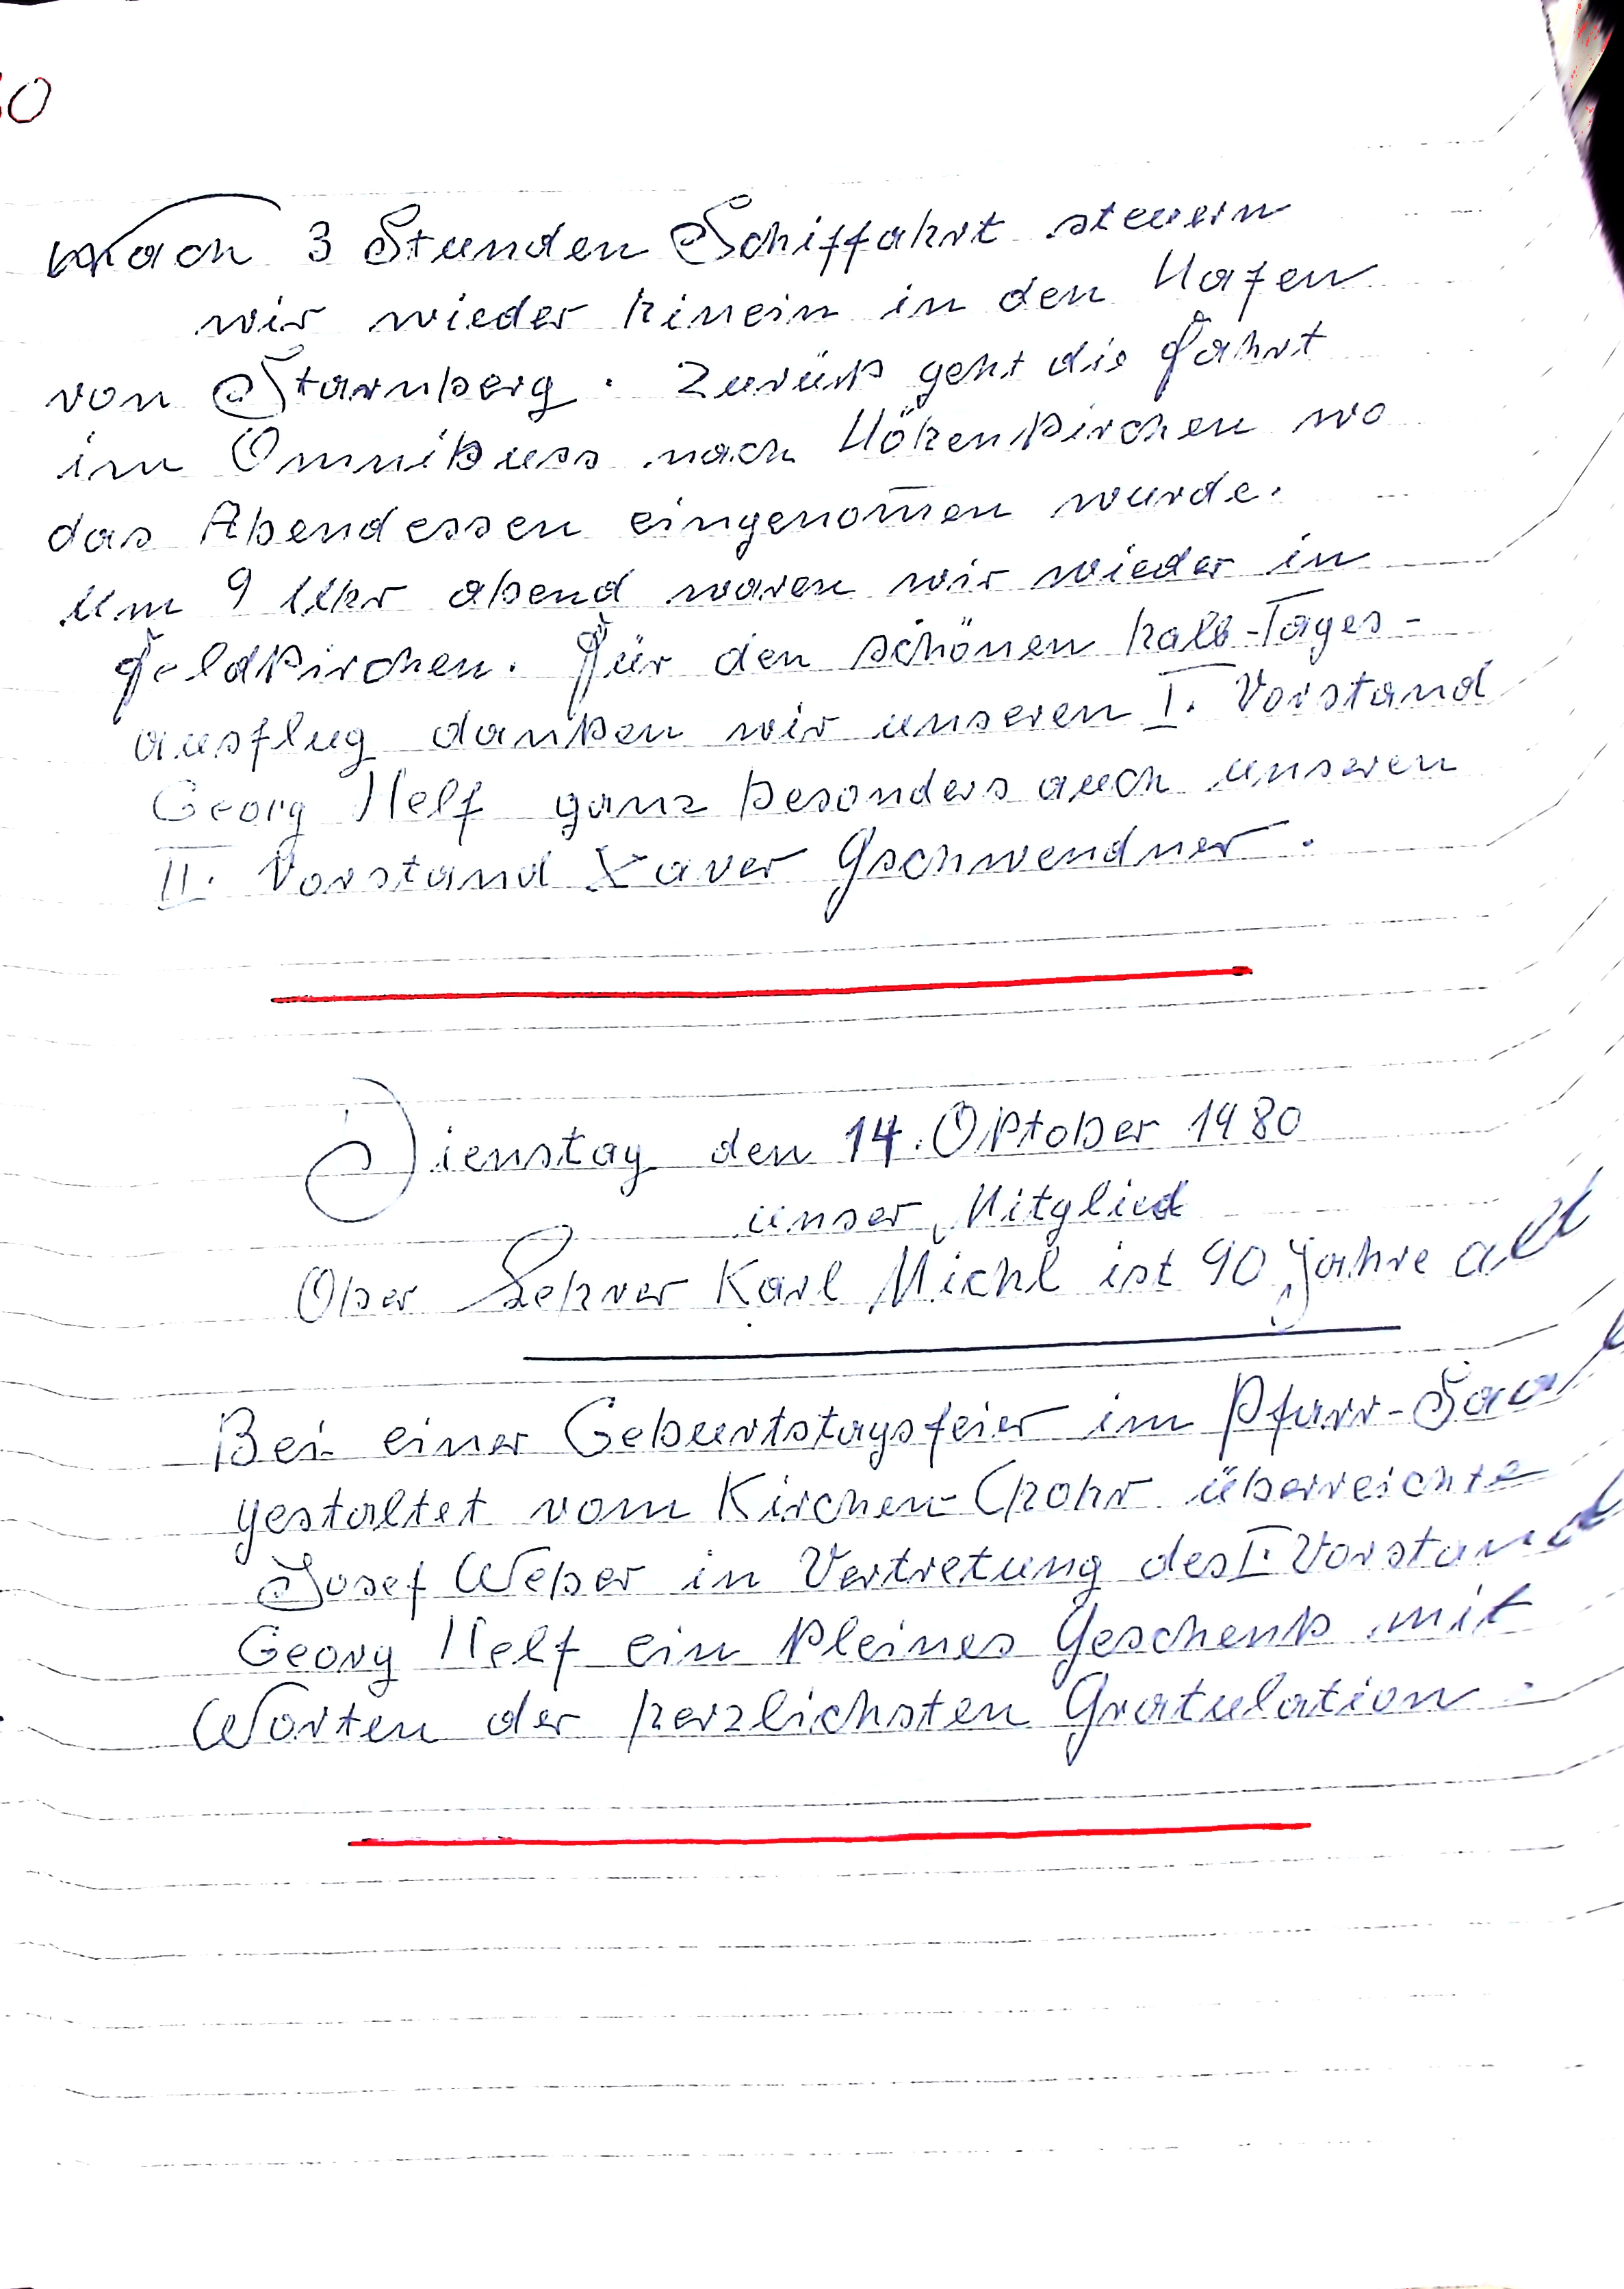 Nach 3 Stunden Schiffahrt steuern
wir wieder hinein in den Hafen
von Starnberg. Zurück geht die Fahrt
im Omnibuss nach Höhenkirchen wo
das Abendessen eingenom̄en wurde.
Um 9 Uhr abend waren wir wieder in
Feldkirchen. Für den schönen halb-Tages-
ausflug danken wir unseren I. Vorstand
Georg Helf ganz besonders auch unseren
II. Vorstand Xaver Gschwendner.
Dienstag den 14. Oktober 1980
unser Mitglied
Ober Lehrer Karl Michl ist 90 Jahre alt
Bei einer Geburtstagsfeier im Pfarr-Saal
gestaltet vom Kirchen-Chohr überreichte
Josef Weber in Vertretung des I. Vorstand
Georg Helf ein kleines Geschenk mit
Worten der herzlichsten Gratulation.